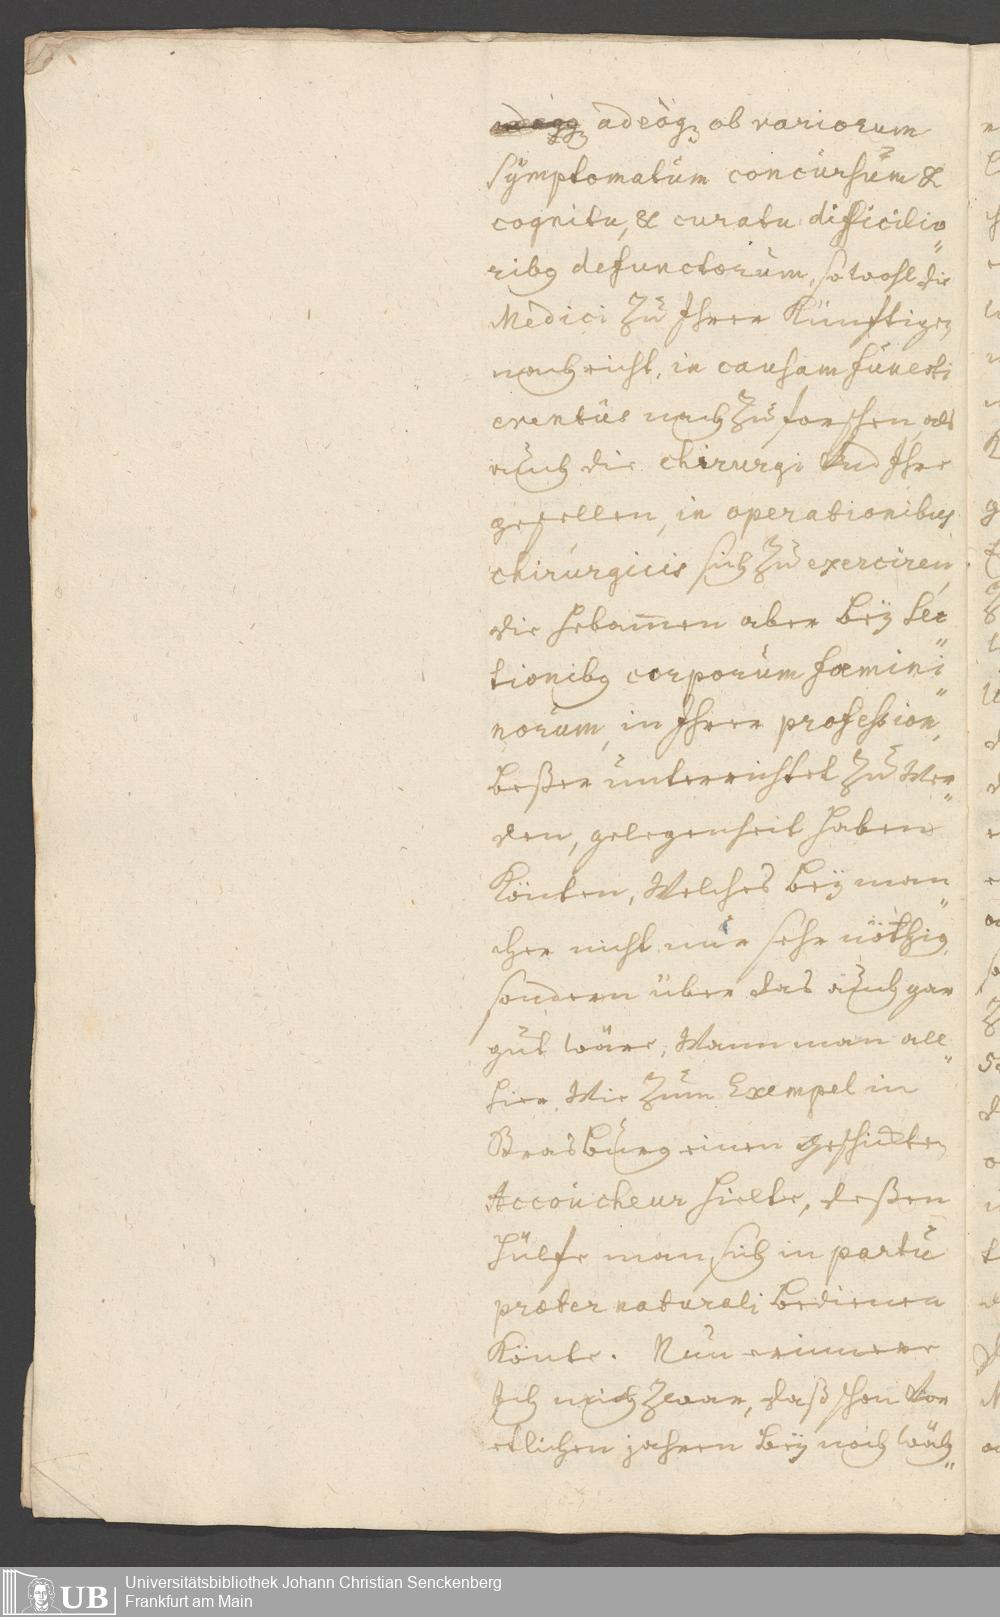 adeòq₃ ob variorum
Symptomatum concursum &
cognitu, & curatu difficilio„
rib9 defunctorum, sowohl die
Medici zu Ihrer Künftigen
nachricht, in causam funesti
eventûs nach zu forschen, als
auch die chirurgi Und Ihre
gesellen, in operationibus
chirurgicis sich zu exerciren,
die Hebam̄en aber beÿ Sec„
tionib9 corporum fœmini„
norum, in Ihrer profession,
beßer unterrichtet zu Wer„
den, gelegenheit haben
Könten, Welches beÿ man„
cher nicht nur sehr nöthig,
sondern über das auch gar
gut wäre, Wann man all„
hier, Wie zum Exempel in
Strasburg einen geschickten
Accoucheur hielte, deßen
Hülfe man sich in partu
præter naturali bedienen
Könte. Nun erinnere
Ich mich zwar, daß schon Vor
etlichen jahren beÿ noch wäh„
Universitätsbibliothek Johann Christian Senckenberg
Frankfurt am Main
UB